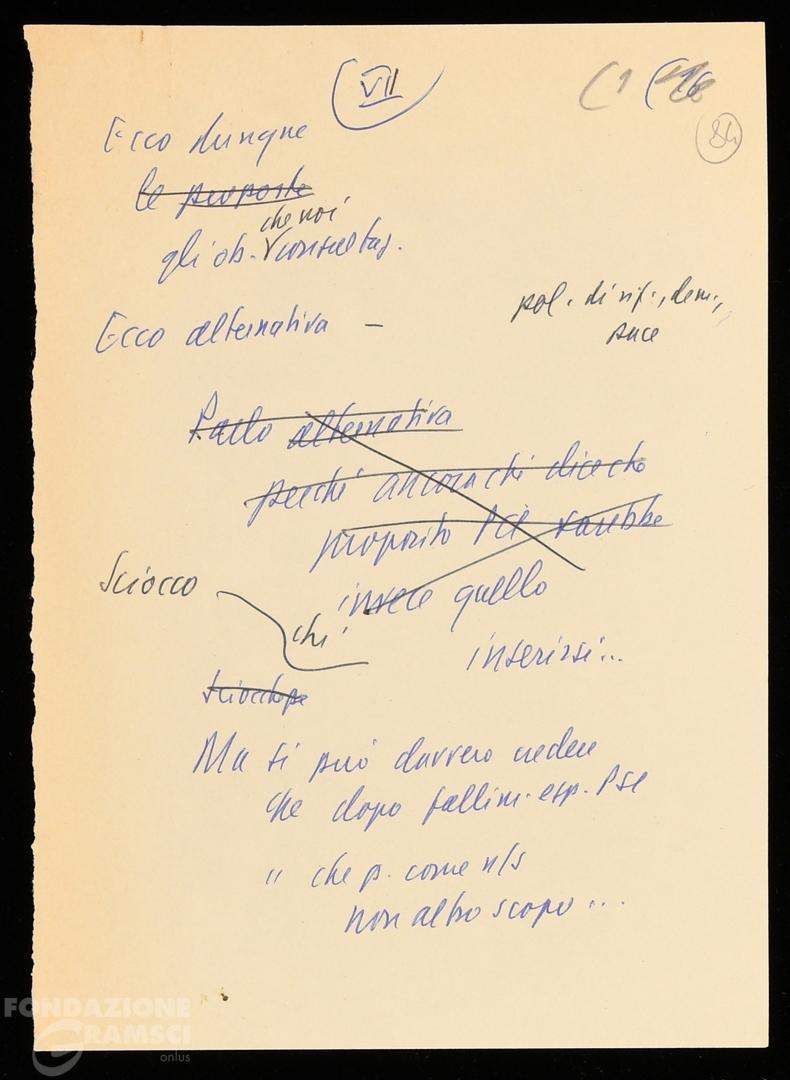 VII
(1 (16
84
Ecco dunque
le proposte
che noi
gli ob. consultaz.
Ecco alternativa —
pol. di rif., dem.,
pace
Parlo alternativa
perché ancora chi dice che
proposito PCI sarebbe
invece quello
Sciocco
chi
inserirsi...
Ma si può davvero credere
che dopo fallim. esp. PSI
" che p. come n/s
non altro scopo ...
FONDAZIONE
GRAMSCI
onlus